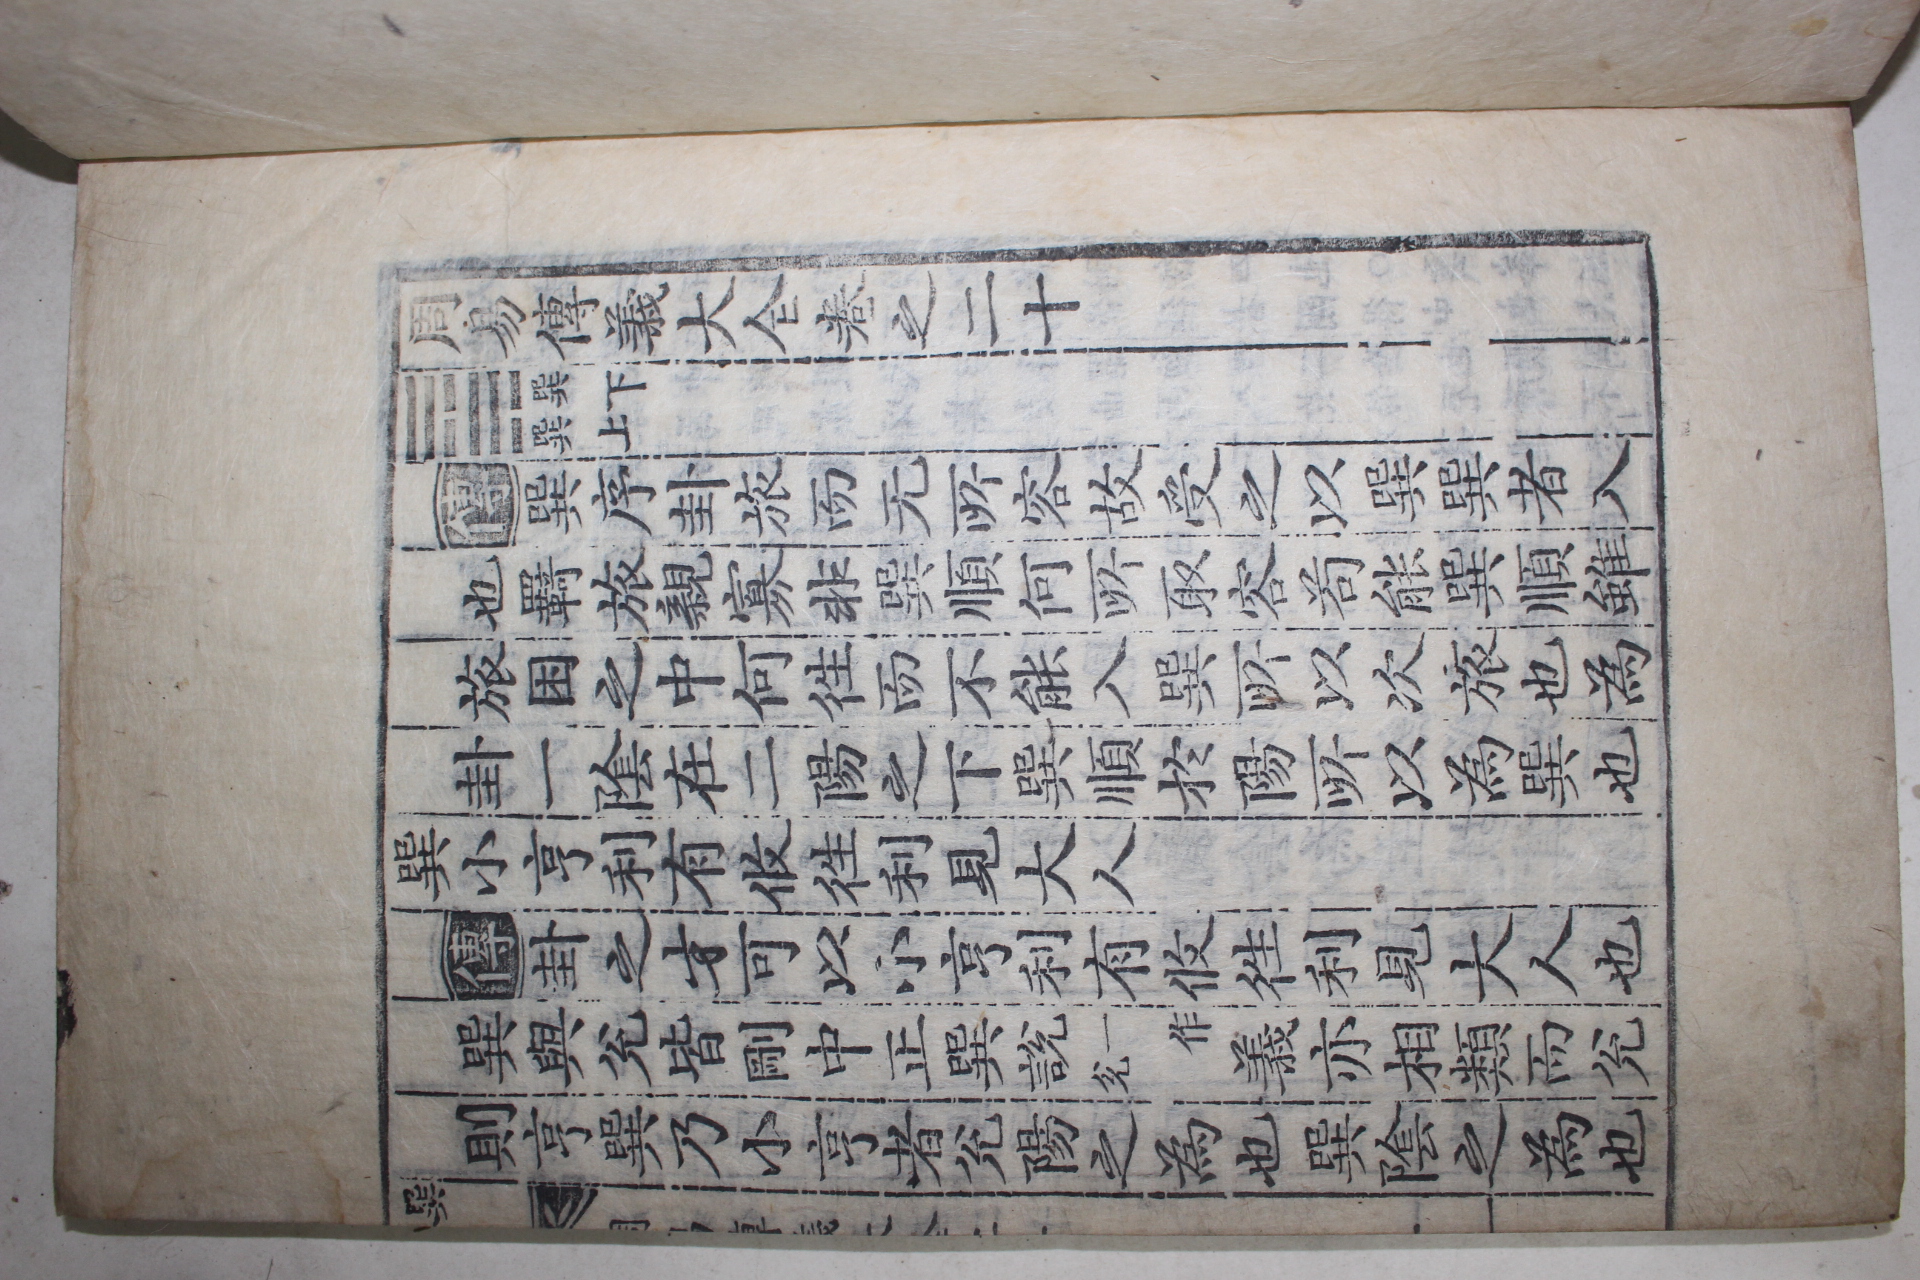 周易傳義大全卷之二十
巽下
巽上
傳巽序卦旅而无所容故受之以巽巽者入
也羇旅親寡非巽順何所取容苟能巽順雖
旅困之中何往而不能入巽所以次旅也為
卦一陰在二陽之下巽順於陽所以為巽也
巽小亨利有攸往利見大人
傳卦之才可以小亨利有攸往利見大人也
巽與兊皆剛中正巽說一作兊義亦相類而兊
則亨巽乃小亨者兊陽之為也巽陰之為也
巽